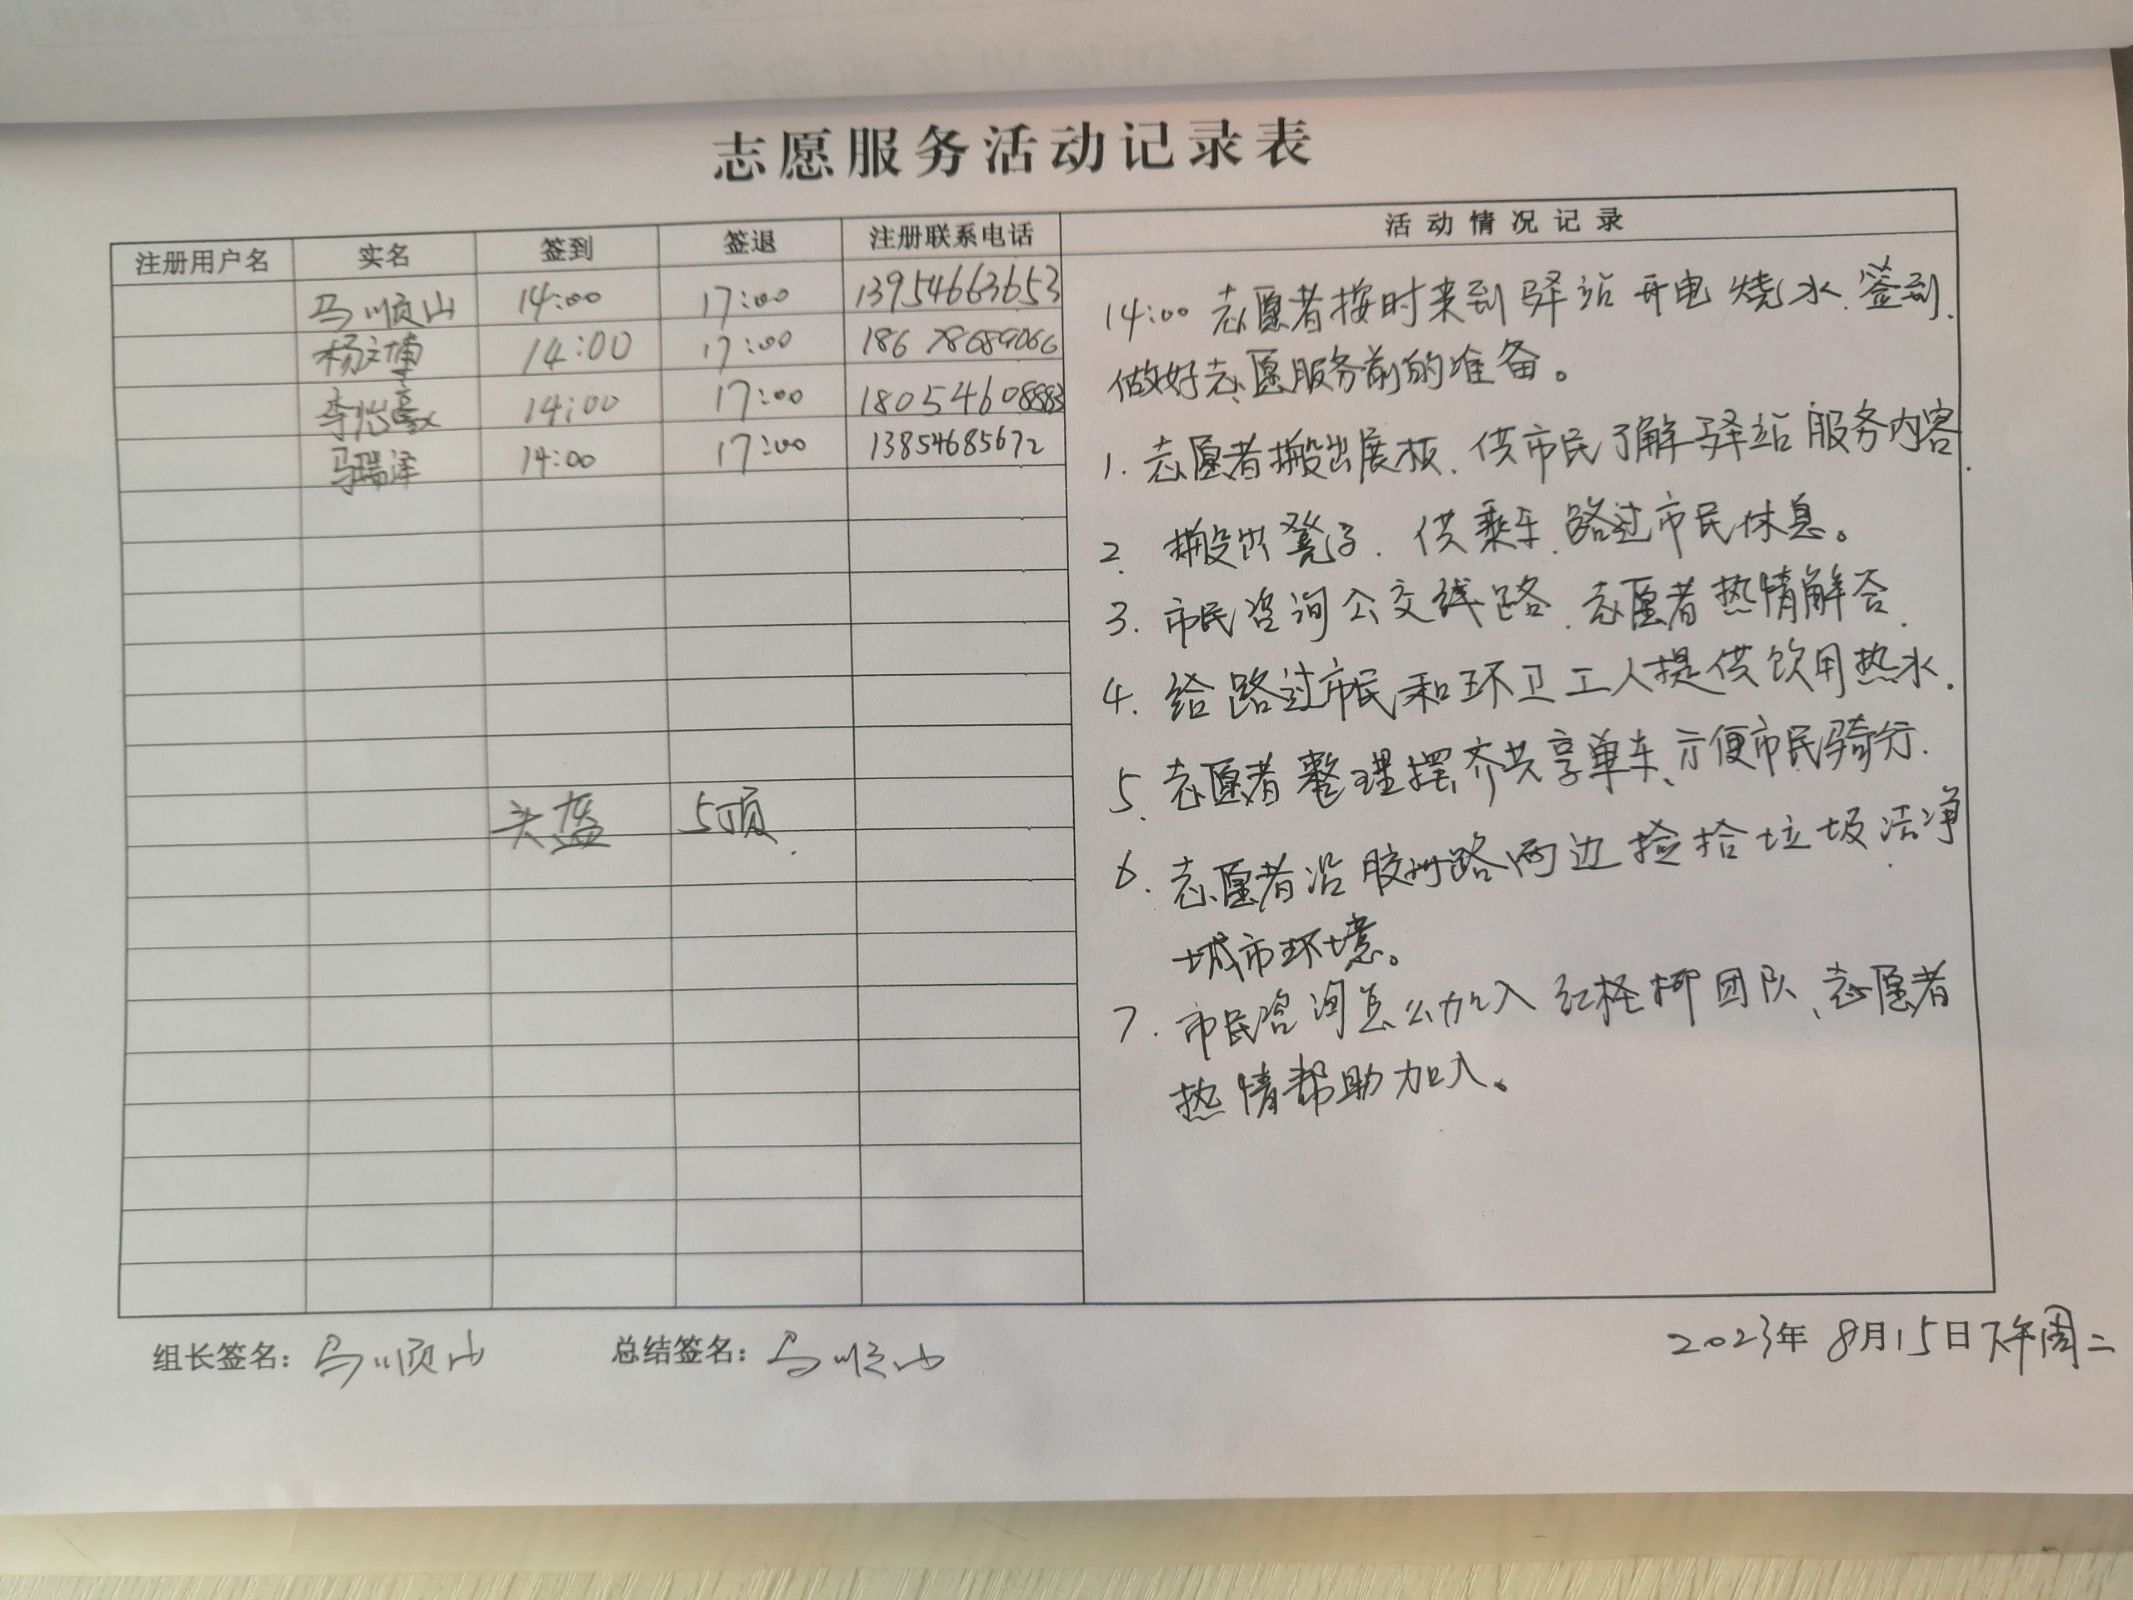 志愿服务活动记录表
注册用户名 实名 签到 签退 注册联系电话 活动情况记录
马顺山 14:00 17:00 13954663653
14:00 17:00 18678689066
李怡 14:00 17:00
马瑞泽 14:00 17:00 13854685672
头盔 5顶.
14:00 志愿者按时来到驿站开电烧水、签到.
做好志愿服务前的准备。
1. 志愿者搬出展板、供市民了解驿站服务内容.
2. 搬出凳子、供乘车、路过市民休息。
3. 市民咨询公交线路、志愿者热情解答.
4. 给路过市民和环卫工人提供饮用热水.
5. 志愿者整理摆齐共享单车、方便市民骑行.
6. 志愿者沿胶州路两边捡拾垃圾洁净
城市环境。
7. 市民咨询怎么加入红柽柳团队、志愿者
热情帮助加入。
组长签名: 马顺山 总结签名: 马顺山 2023年 8月15日下午周二